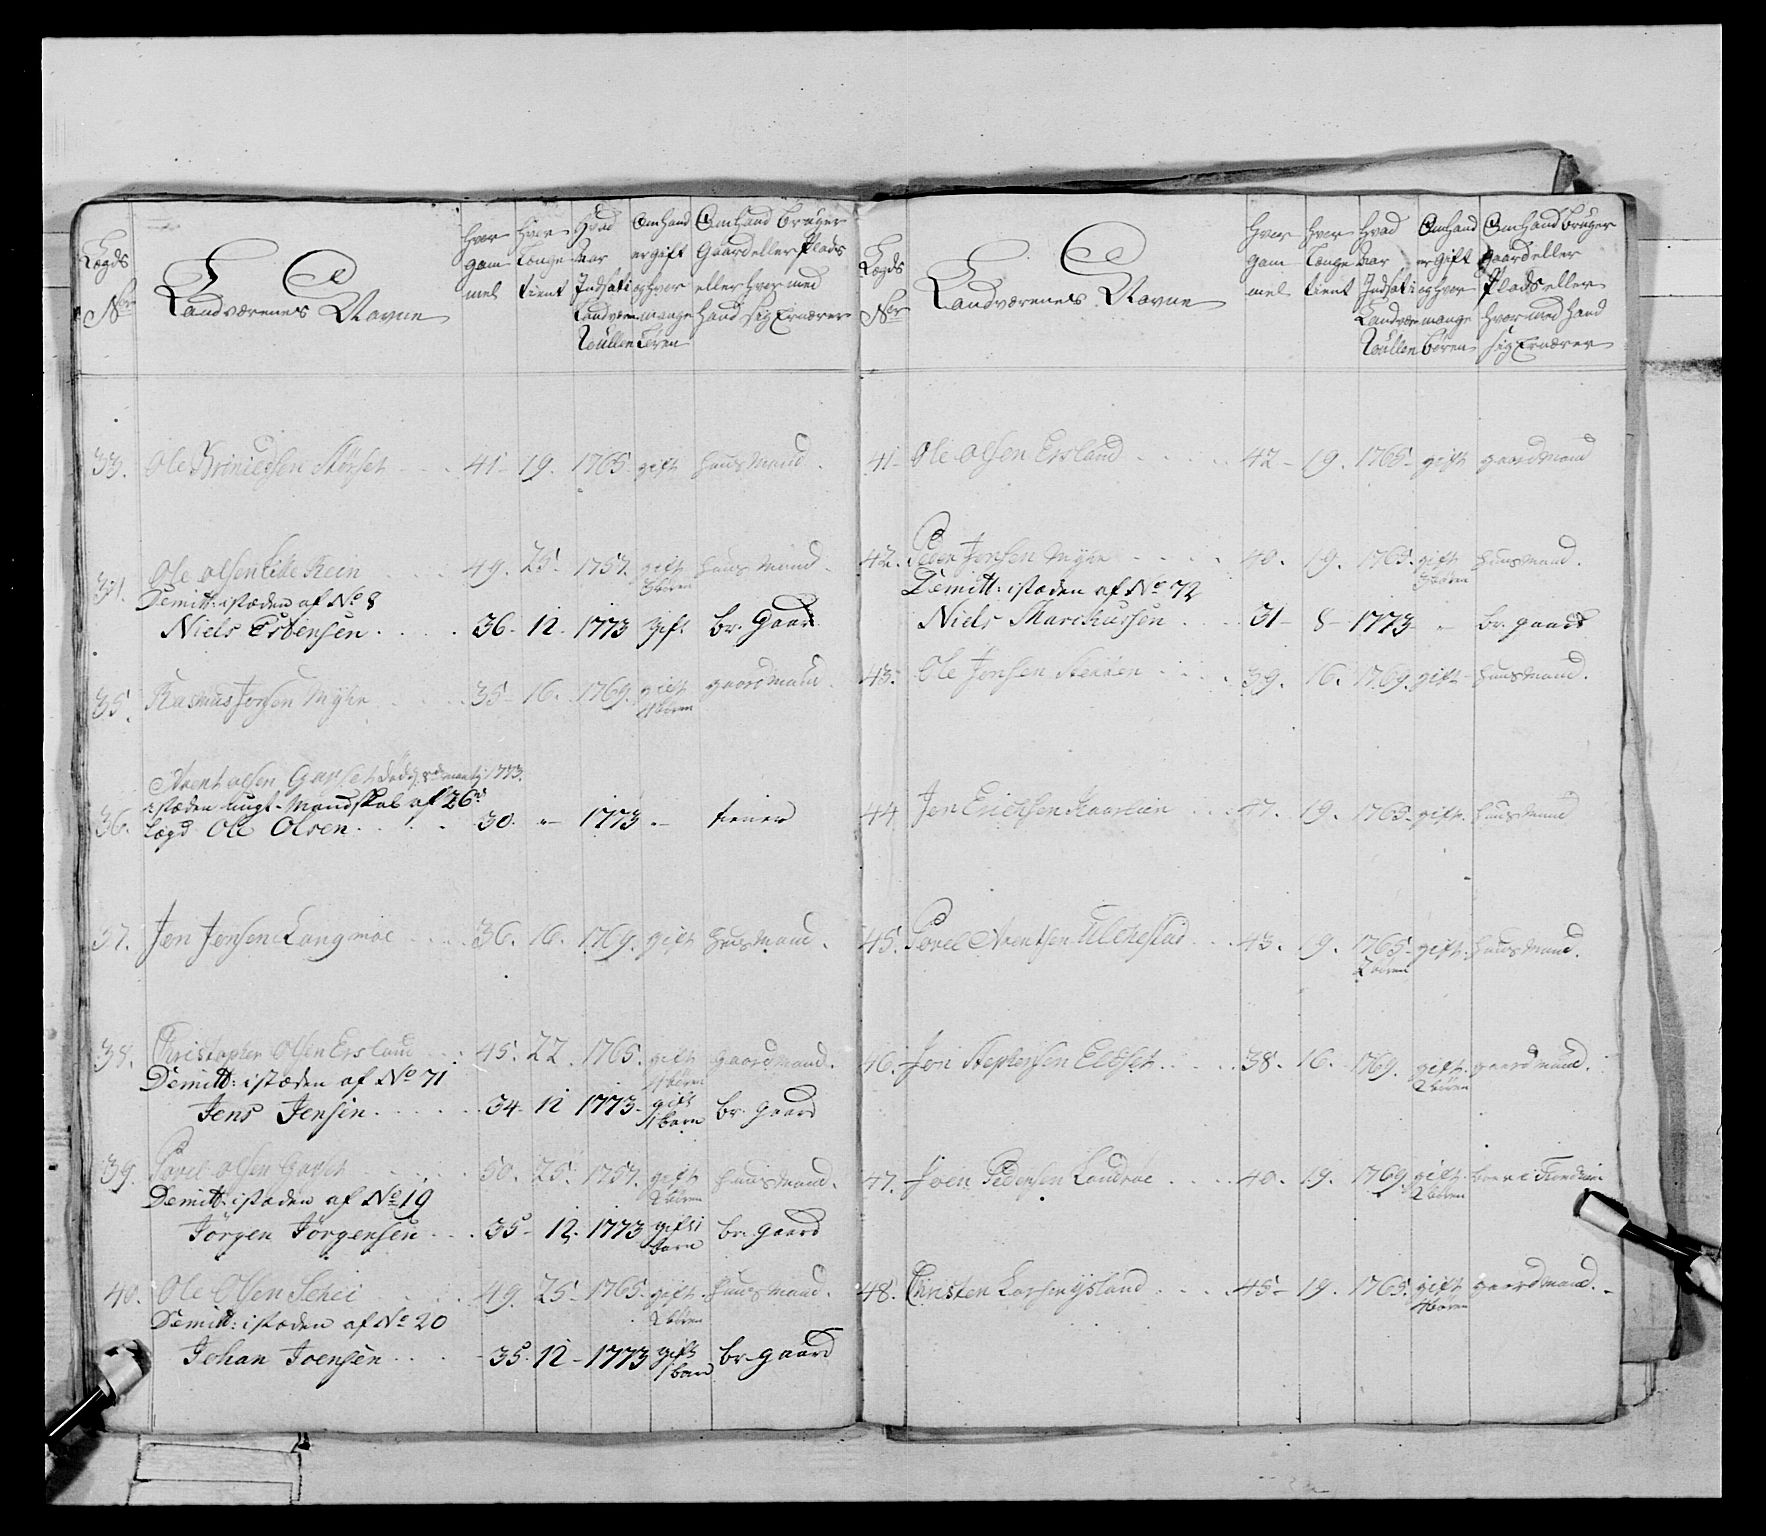 Lægds
Nor
Landværenes Navne
hvor
gam
mel
hvor
Længe
tient
Hvad
Aar
Indsat i
Landværn
Roullen
Om Hand
er gift
og hvor
mange
Børen
Om Hand bruger
Gaard eller Plads
eller hvor med
Hand sig Ernærer
33. Ole Størset 41- 19. 1765. gift huusmand.
34. Ole Olsen Rein 49. 25. 1757. gift huusmand.
3 børen
Demitt: istæden af No 8
Niels Estensen 36- 12. 1773 gift br. Gaard
35. Rasmus Jonsen Myhr 35- 16. 1769. gift gaardmand.
4 børen
Arent Olsen Garset død 1773.
istæden ungt Mandskab af 26de
36. Lægd Ole Olsen 30. „- 1773 „- tiener
37. Jon Jonsen Langmoe 36. 16. 1769. gift huusmand.
38. Christopher Olsen Ersland 45. 22. 1765. gift gaardmand.
4 børen
Demitt: istæden af No 71
Jens Jensen 34- 12 1773- gift br. gaard
1 barn
39. Povel Olsen Garset 50. 25. 1757. gift huusmand.
2 børen
Demitt: istæden af No 19
Jørgen Jørgensen 35- 12. 1773 gift 1 br. gaard
barn
40. Ole Olsen Schei 49. 25- 1765. gift huusmand.
2 børen
Demitt: istæden af No 20
Johan Joensen 35. 12- 1773 gift br. gaard
1 barn
Lægds
Nor
Landværenes Navne
hvor
gam
mel
hvor
Længe
tient
Hvad
Aar
Indsat i
Landværn
Roullen
Om Hand
er Gift
og hvor
mange
børen
Om Hand bruger
gaard eller
Plads eller
hvor med Hand
sig Ernærer
41- Ole Olsen Ersland 42- 19. 1765- gift gaardmand
42. Peder Jonsen Myhr 40. 19. 1765. gift huusmand.
3 børen
Demitt: istæden af No 72
Niels Marckussen 31- 8- 1773- „- br. gaard
43. Ole Jonsen 39. 16. 1769. gift huusmand.
44 Jon Erichsen 47. 19. 1765- gift. huusmand
45. Povel Arentsen Ulchestad 43. 19. 1765- gift. huusmand.
2 børen
46. Jon Stephensen Eldset 38. 16. 1769. gift. gaardmand.
2 børen
47. Joen Pedersen Landroe 40. 19. 1769. gift
2 børen
48. Christen Larsen Ysland 45- 19. 1765. gift gaardmand.
4 børen